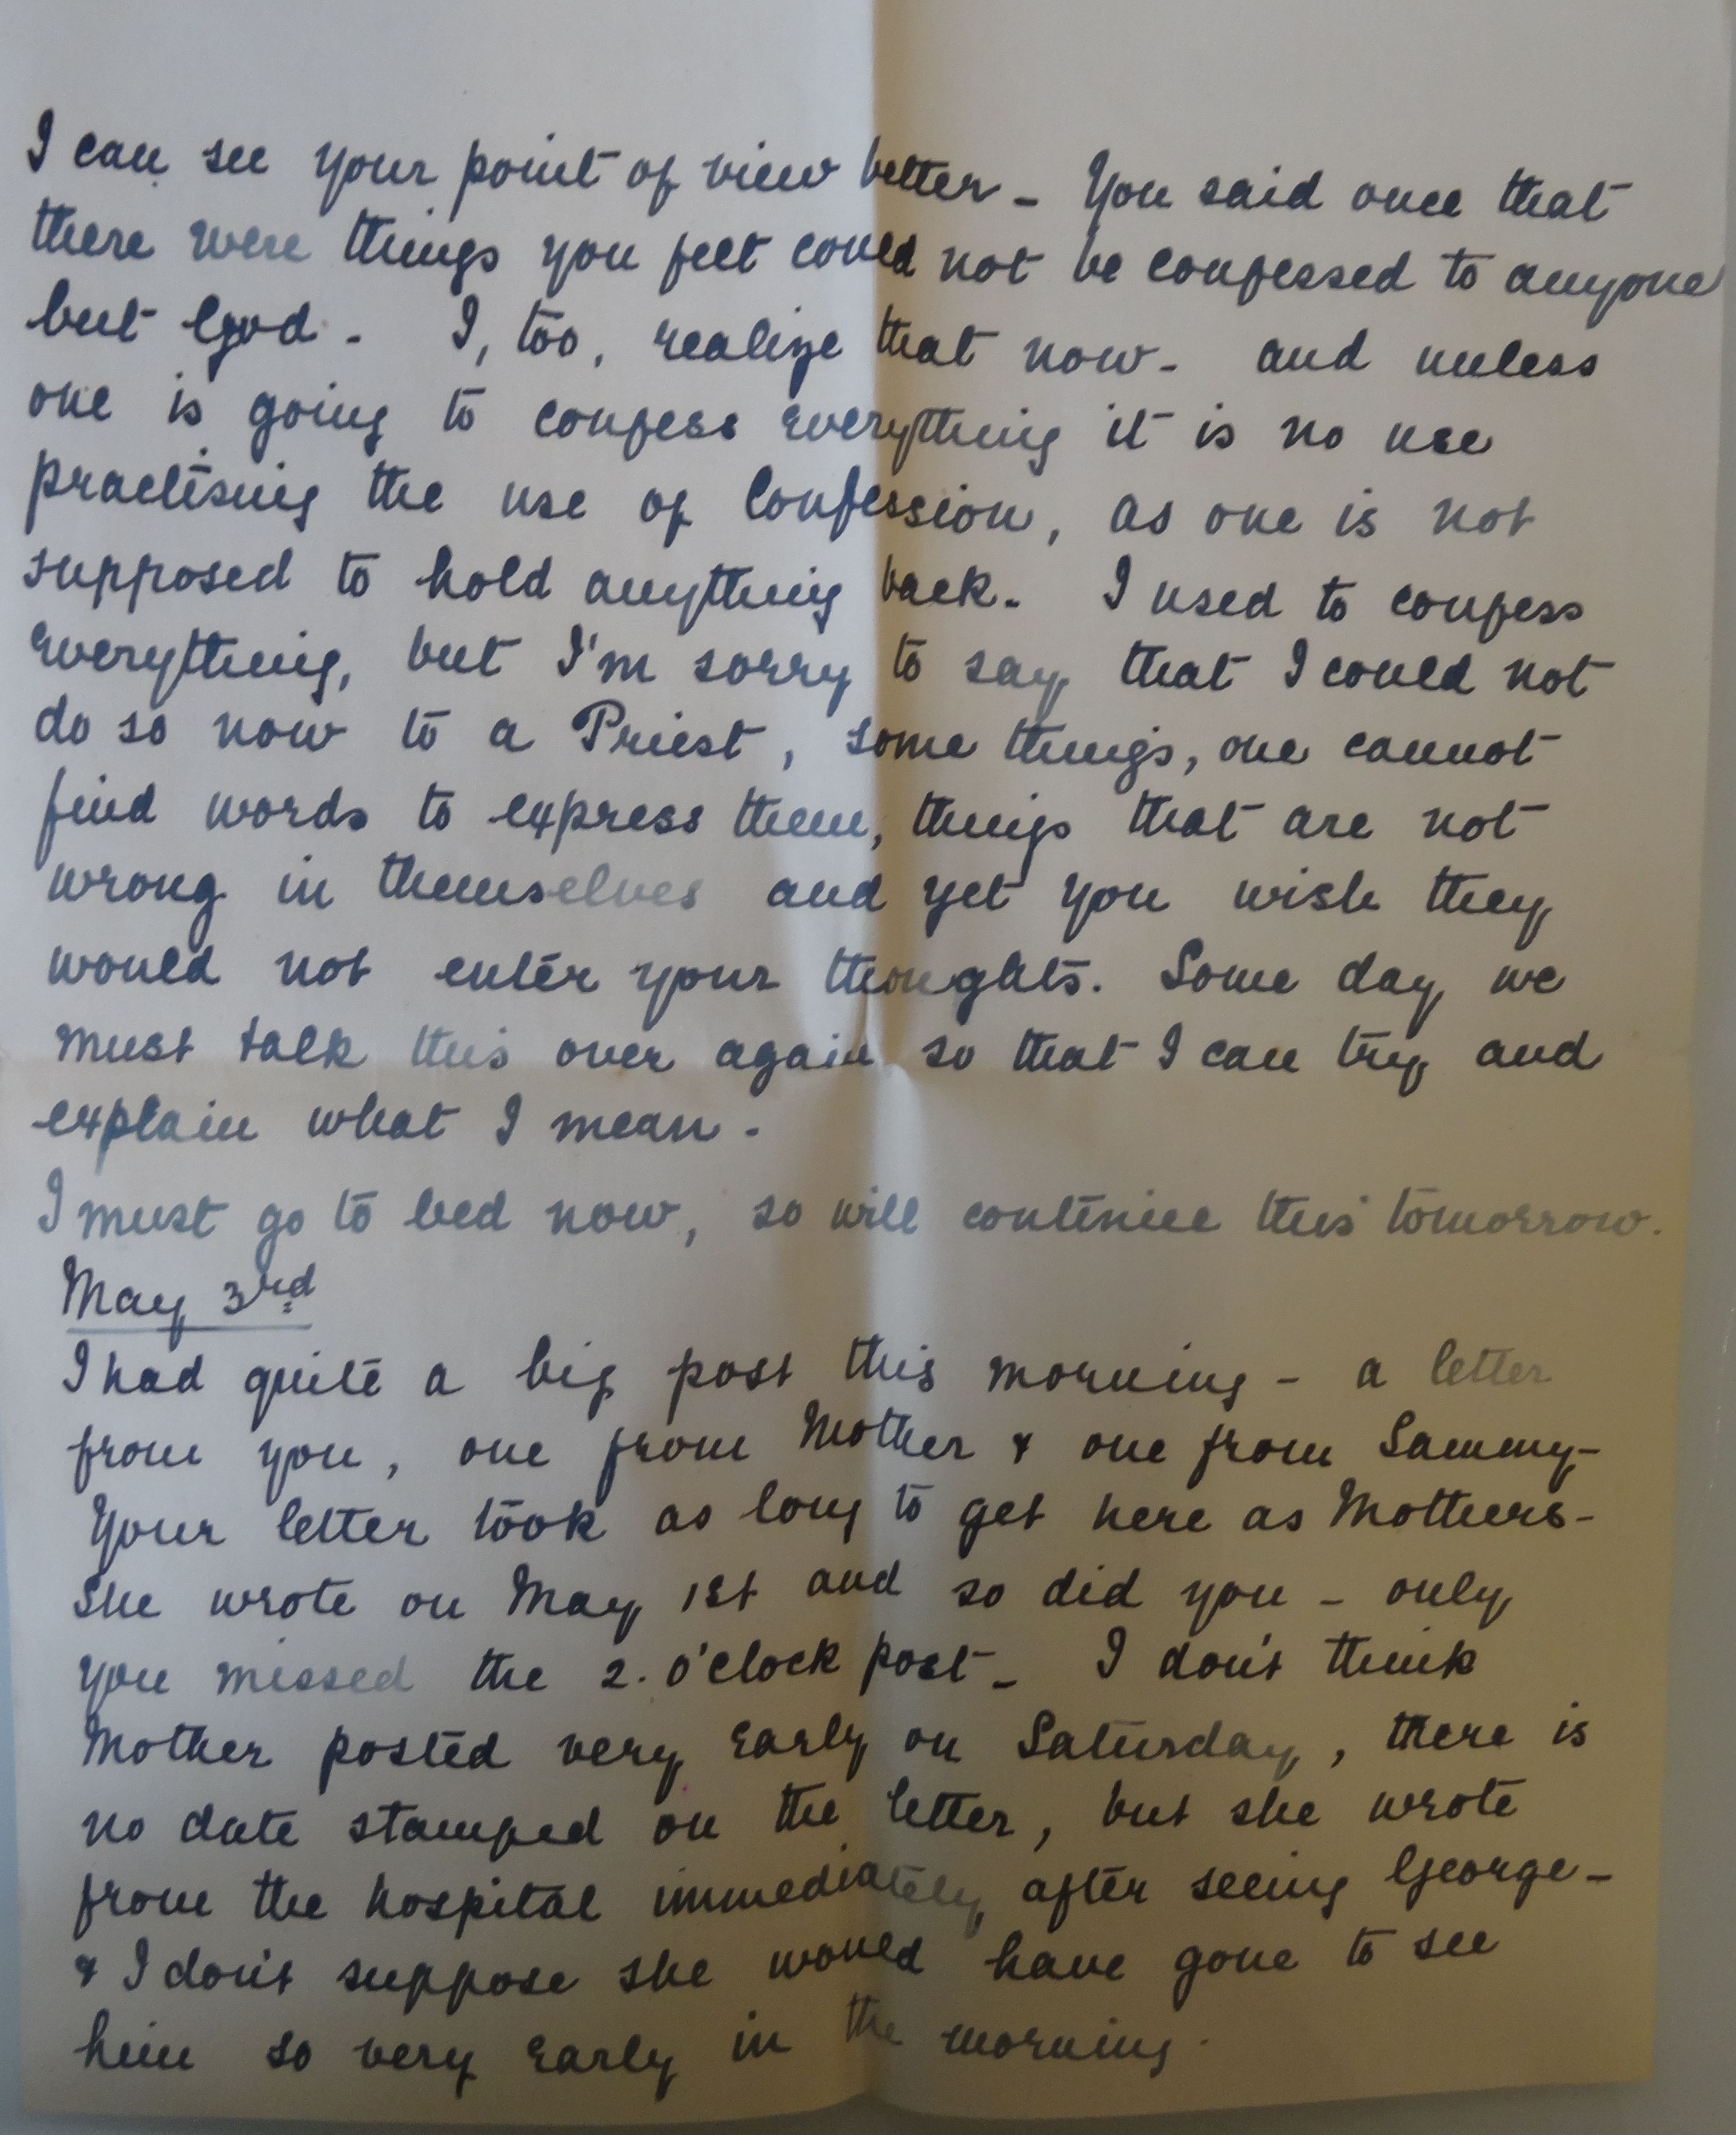 I can see your point of view better - You said once that
there were things you felt could not be confessed to anyone
but God - I, too, realize that now - and unless
one is going to confess everything it is no use
practising the use of Confession, as one is not
supposed to hold anything back - I used to confess
everything, but I'm sorry to say that I could not
do so now to a Priest, some things, one cannot
find words to express them, things that are not
wrong in themselves and yet you wish they
would not enter your thoughts. Some day we
must talk this over again so that I can try and
explain what I mean -
I must go to bed now, so will continue this tomorrow.
May 3rd
I had quite a big post this morning - a letter
from you, one from Mother & one from Sammy -
Your letter took as long to get here as Mothers -
She wrote on May 1st and so did you - only
you missed the 2. O'clock post - I don't think
Mother posted very early on Saturday, there is
no date stamped on the letter, but she wrote
from the hospital immediately after seeing George -
& I don't suppose she would have gone to see
him so very early in the morning.